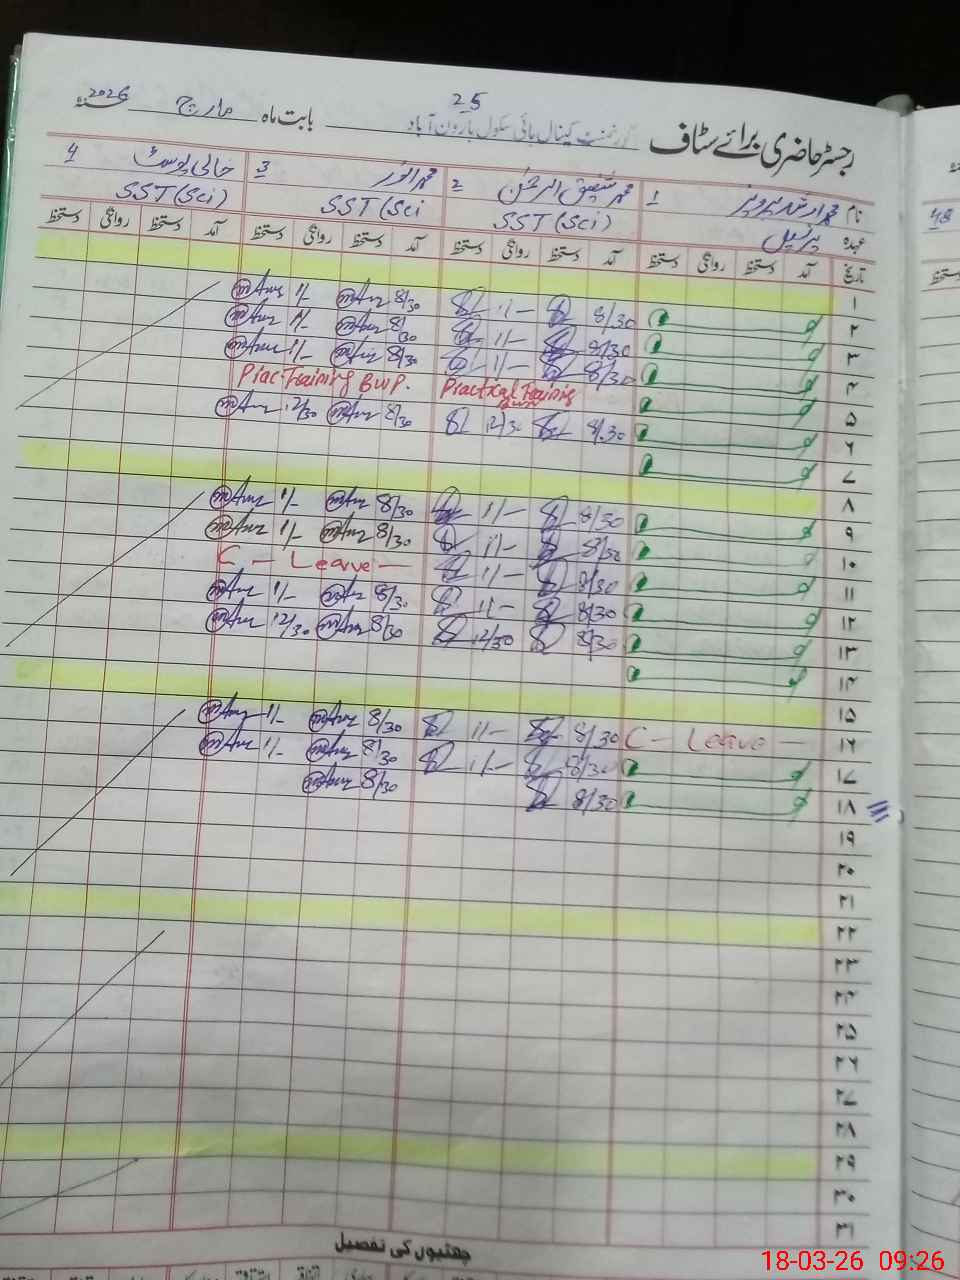 25
رجسٹر حاضری برائے سٹاف گورنمنٹ کینال ہائی سکول ہارون آباد بابت ماہ مارچ سنہ 2026
نام 1 محمد ارشد پرویز 2 محمد شفیق الرحمٰن 3 محمد انور 4 خالی پوسٹ
عہدہ پرنسپل SST (Sci) SST (Sci SST (Sci)
تاریخ آمد دستخط روانگی دستخط آمد دستخط روانگی دستخط آمد دستخط روانگی دستخط آمد دستخط روانگی دستخط
۱
۲ 8/30 1/- 8/30 1/-
۳ 8/30 1/- 8/30 1/-
۴ 8/30 1/- 8/30 1/-
۵ Practical Training BWP. Prac Training BWP.
۶ 8/30 12/30 8/30 12/30
۷
۸
۹ 8/30 1/- 8/30 1/-
۱۰ 8/30 1/- 8/30 1/-
۱۱ 8/30 1/- C - Leave -
۱۲ 8/30 1/- 8/30 1/-
۱۳ 8/30 12/30 8/30 12/30
۱۴
۱۵
۱۶ C - Leave - 8/30 1/- 8/30 1/-
۱۷ 8/30 1/- 8/30 1/-
۱۸ 8/30 8/30
۱۹
۲۰
۲۱
۲۲
۲۳
۲۴
۲۵
۲۶
۲۷
۲۸
۲۹
۳۰
۳۱
چھٹیوں کی تفصیل
48
18-03-26 09:26